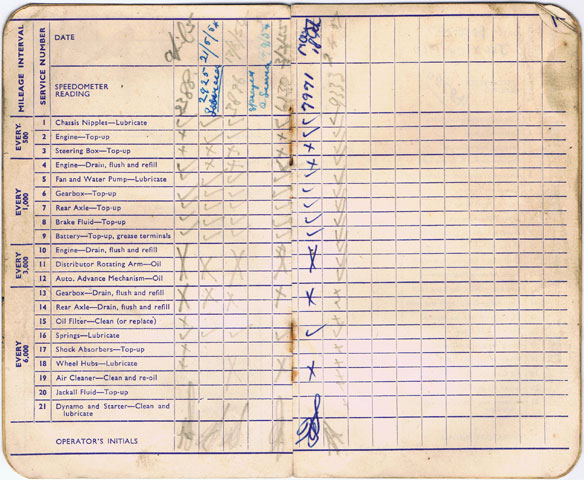 MILEAGE INTERVAL
SERVICE NUMBER
DATE
21/5/54
SPEEDOMETER READING
2925
7971
9133
EVERY 500
1 Chassis Nipples—Lubricate
2 Engine—Top-up
3 Steering Box—Top-up
EVERY 1,000
4 Engine—Drain, flush and refill
5 Fan and Water Pump—Lubricate
6 Gearbox—Top-up
7 Rear Axle—Top-up
8 Brake Fluid—Top-up
9 Battery—Top-up, grease terminals
EVERY 3,000
10 Engine—Drain, flush and refill
11 Distributor Rotating Arm—Oil
12 Auto. Advance Mechanism—Oil
EVERY 6,000
13 Gearbox—Drain, flush and refill
14 Rear Axle—Drain, flush and refill
15 Oil Filter—Clean (or replace)
16 Springs—Lubricate
17 Shock Absorbers—Top-up
18 Wheel Hubs—Lubricate
19 Air Cleaner—Clean and re-oil
20 Jackall Fluid—Top-up
21 Dynamo and Starter—Clean and lubricate
OPERATOR'S INITIALS